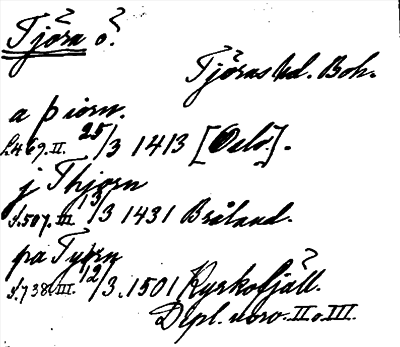 Tjörn ö.
Tjörns hd. Boh.
a þiorn.
S.469.II. 25/3 1413 [Oslo].
j Thjorn
S.507.III 13/3 1431 Bråland.
pa Tyorn
S.738.III. 12/3.1501 Kyrkofjäll.
Dipl. norv. II o. III.